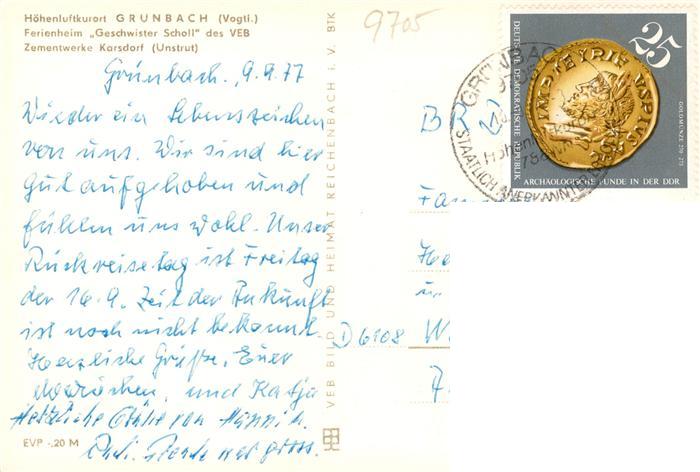 Höhenluftkurort GRÜNBACH (Vogtl.)
Ferienheim „Geschwister Scholl" des VEB
Zementwerke Karsdorf (Unstrut)
Grünbach, 9.9.77
Wieder ein Lebenszeichen
von uns. Wir sind hier
gut aufgehoben und
fühlen uns wohl. Unser
Rückreisetag ist Freitag
der 16.9. Zeit der Ankunft
ist noch nicht bekannt.
Herzliche Grüße, Euer
und Katja
Herzliche Grüße von
war gross.
EVP -,20 M
VEB BILD UND HEIMAT REICHENBACH i. V. BTK
9705
BRD
D 6108
DEUTSCHE DEMOKRATISCHE REPUBLIK
25
GOLDMÜNZE 270-273
ARCHÄOLOGISCHE FUNDE IN DER DDR
GRÜNBACH
STAATLICH ANERKANNTER